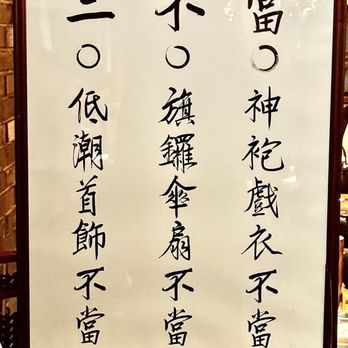 當〇神袍戲衣不當
不〇旗鑼傘扇不當
二〇低潮首飾不當